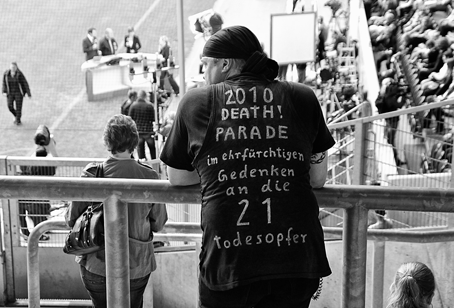 2010
DEATH!
PARADE
im ehrfürchtigen
Gedenken
an die
21
todesopfer